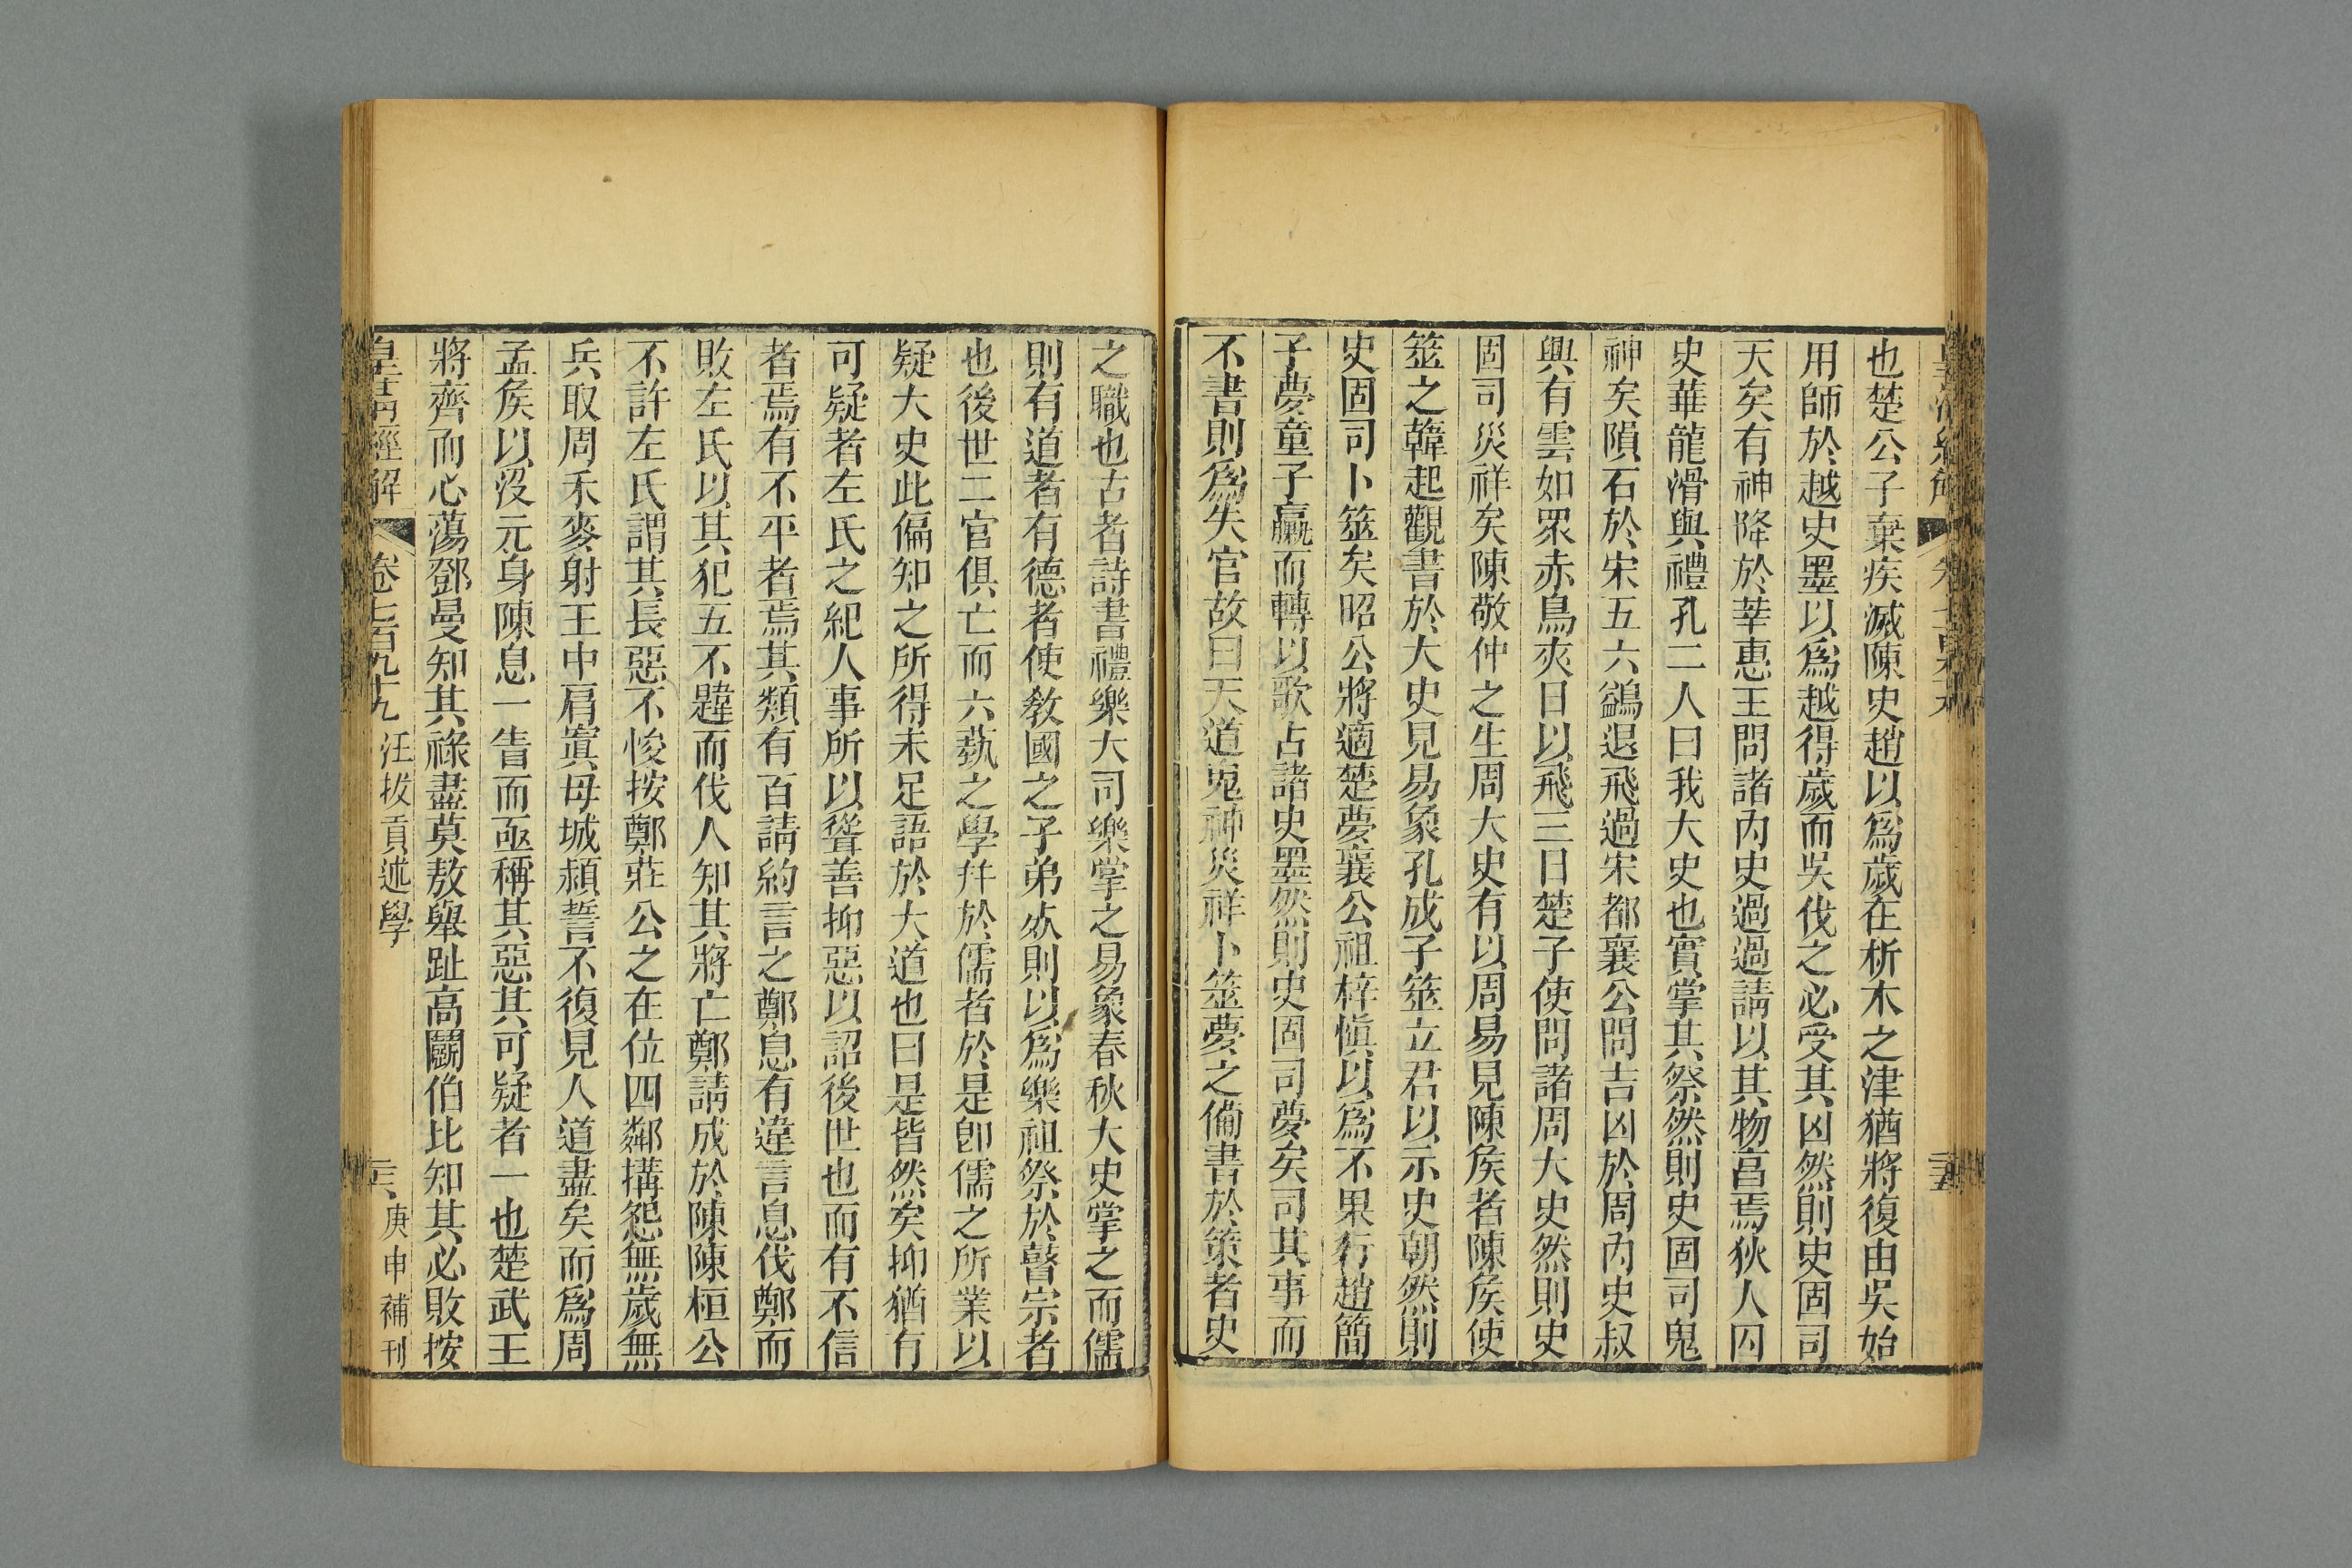 也楚公子棄疾滅陳史趙以爲歲在析木之津猶將復由吳始
用師於越史墨以爲越得歲而吳伐之必受其凶然則史固司
天矣有神降於莘惠王問諸內史過過請以其物享焉狄人囚
史華龍滑與禮孔二人曰我大史也實掌其祭然則史固司鬼
神矣隕石於宋五六鷁退飛過宋都襄公問吉凶於周內史叔
興有雲如眾赤鳥夾日以飛三日楚子使問諸周大史然則史
固司災祥矣陳敬仲之生周大史有以周易見陳矦者陳矦使
筮之韓起觀書於大史見易象孔成子筮立君以示史朝然則
史固司卜筮矣昭公將適楚夢襄公祖梓愼以爲不果行趙簡
子夢童子臝而轉以歌占諸史墨然則史固司夢矣司其事而
不書則爲失官故曰天道鬼神災祥卜筮夢之備書於策者史
之職也古者詩書禮樂大司樂掌之易象春秋大史掌之而儒
則有道者有德者使敎國之子弟殁則以爲樂祖祭於瞽宗者
也後世二官俱亡而六蓺之學幷於儒者於是卽儒之所業以
疑大史此偏知之所得未足語於大道也曰是皆然矣抑猶有
可疑者左氏之紀人事所以聳善抑惡以詔後世也而有不信
者焉有不平者焉其類有百請約言之鄭息有違言息伐鄭而
敗左氏以其犯五不韙而伐人知其將亡鄭請成於陳陳桓公
不許左氏謂其長惡不悛按鄭莊公之在位四鄰搆怨無歲無
兵取周禾麥射王中肩寘母城潁誓不復見人道盡矣而爲周
孟矦以沒元身陳息一眚而亟稱其惡其可疑者一也楚武王
將齊而心蕩鄧曼知其祿盡莫敖舉趾高鬭伯比知其必敗按
皇淸經解 卷七百九十九 汪拔貢述學 庚申補刊